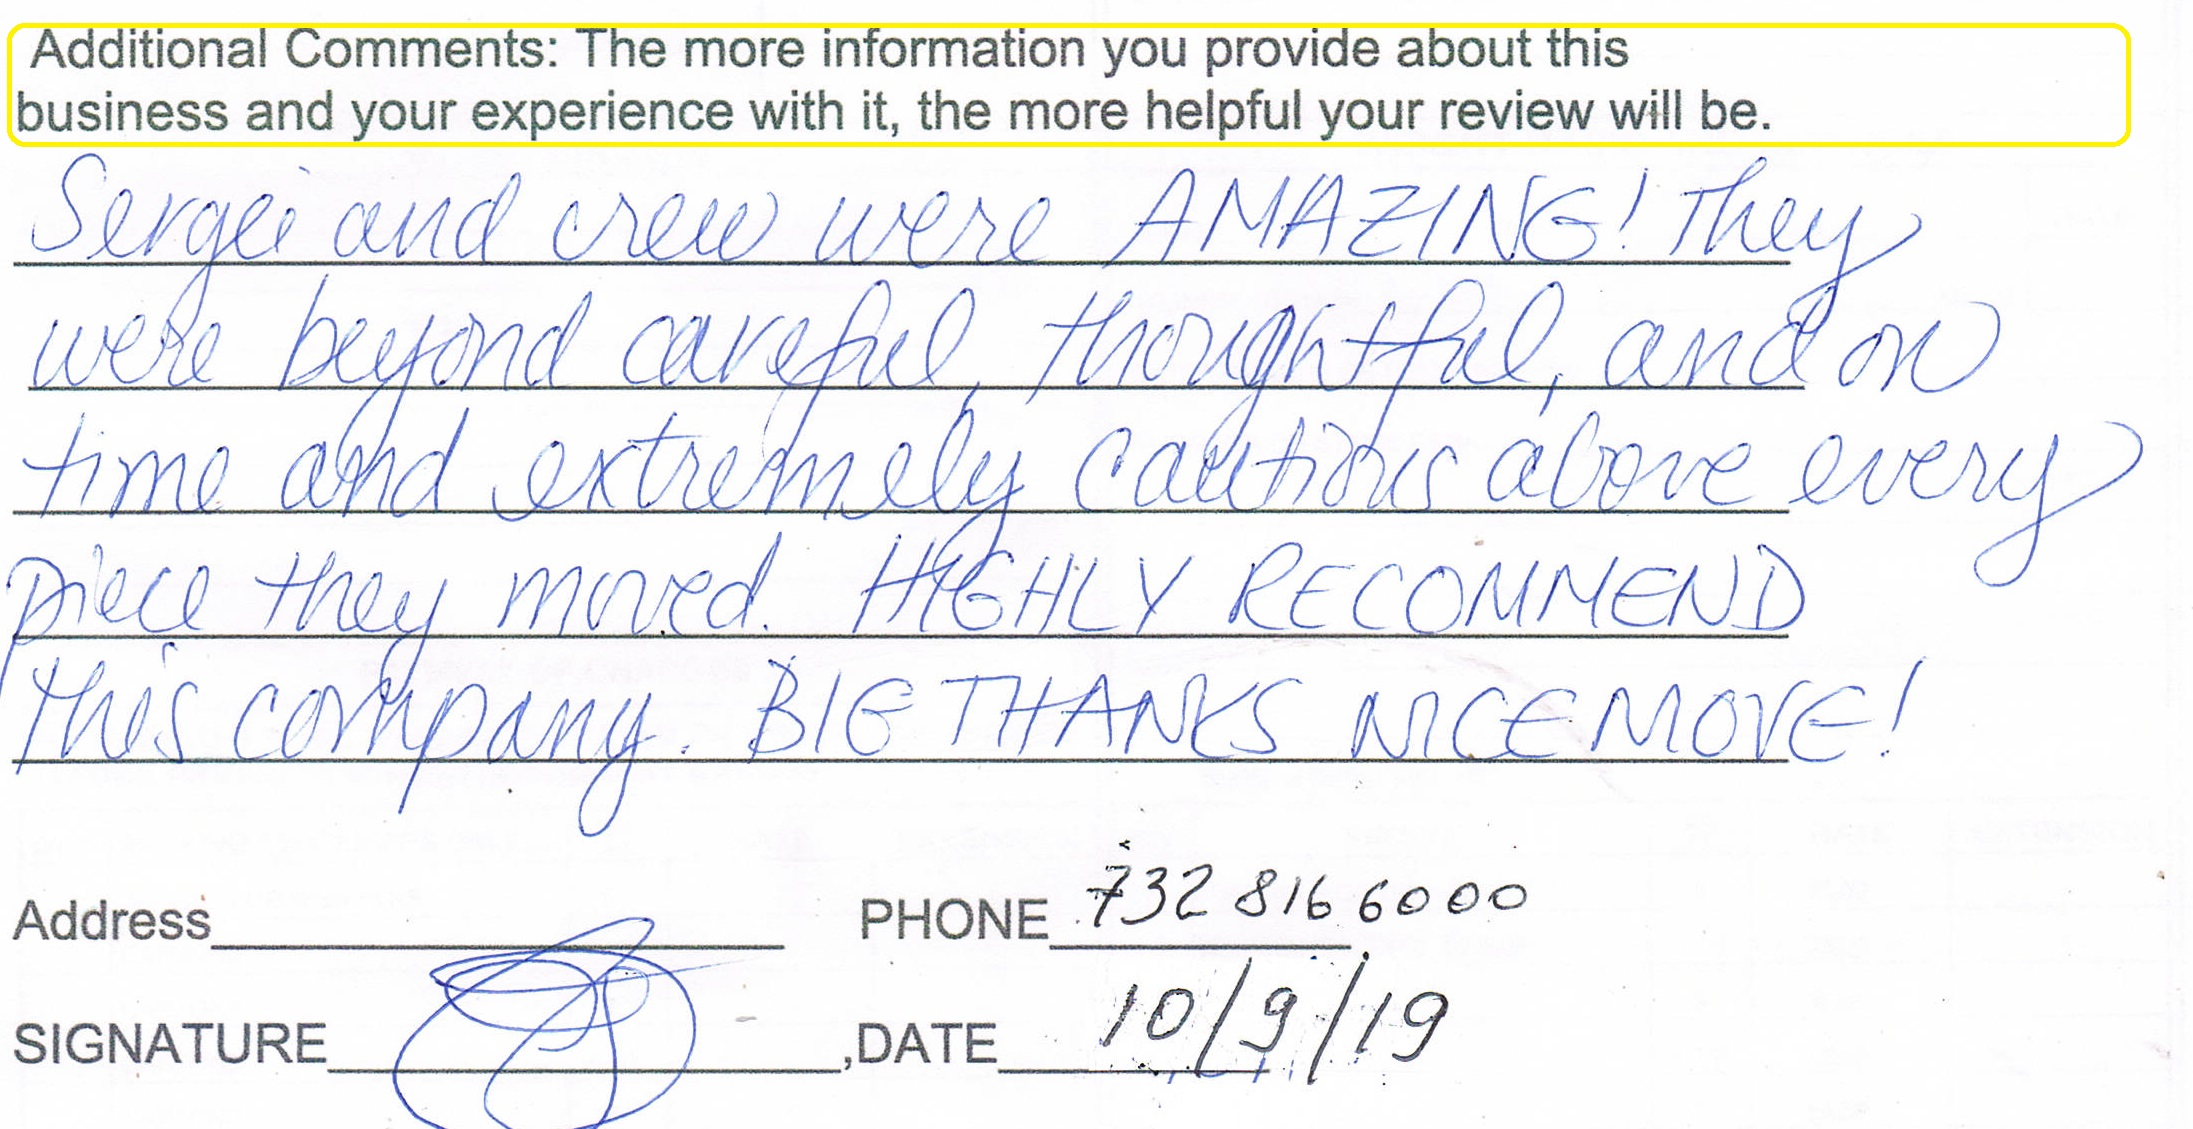 Additional Comments: The more information you provide about this
business and your experience with it, the more helpful your review will be.
Sergei and crew were AMAZING! They
were beyond careful, thoughtful, and on
time and extremely cautious above every
piece they moved. HIGHLY RECOMMEND
this company. BIG THANKS NICE MOVE!
Address PHONE 732 816 6000
SIGNATURE ,DATE 10/9/19